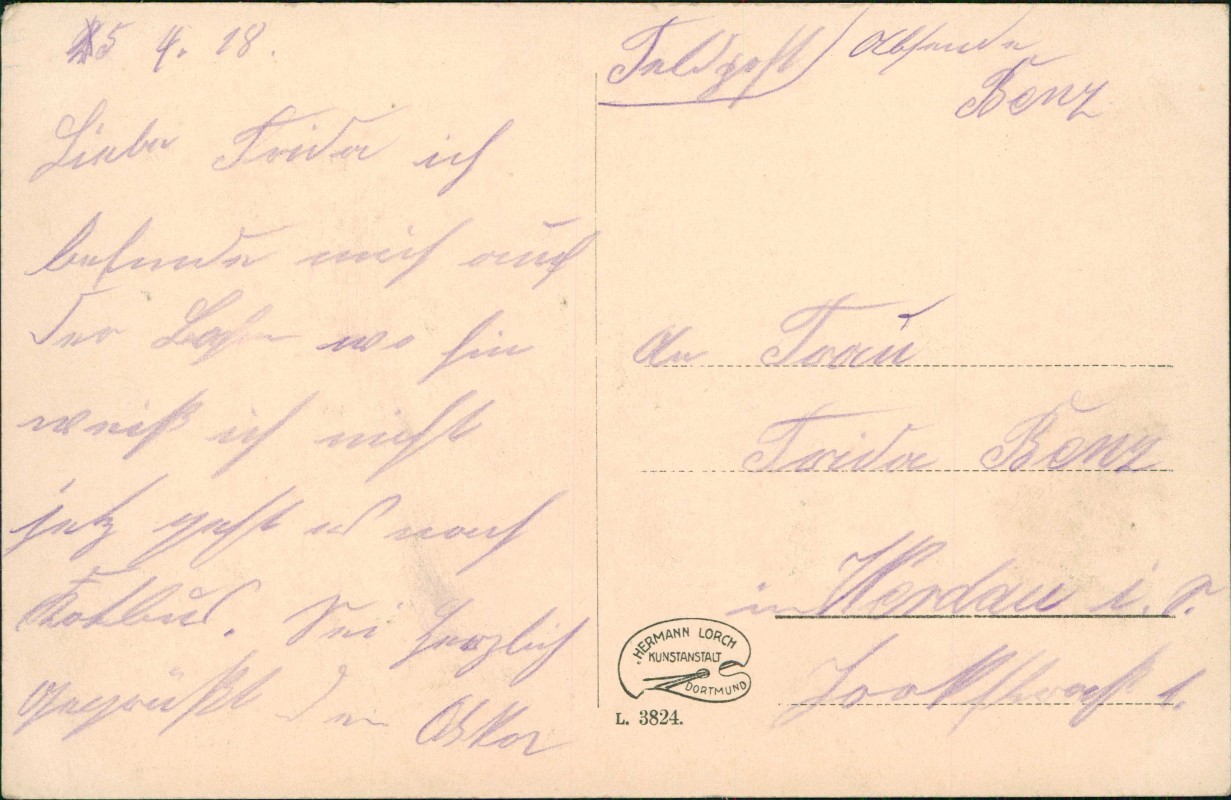 25 4. 18.
Liebe Frida ich
befinde mich auf
der Bahn wo hin
weiß ich nicht
jetz geht es nach
Kotbus. Sei Herzlich
gegrüßt dein Oskar
Feldpost Absender
Benz
An Frau
Frida Benz
in Werdau i. S.
HERMANN LORCH
KUNSTANSTALT
DORTMUND
L. 3824.